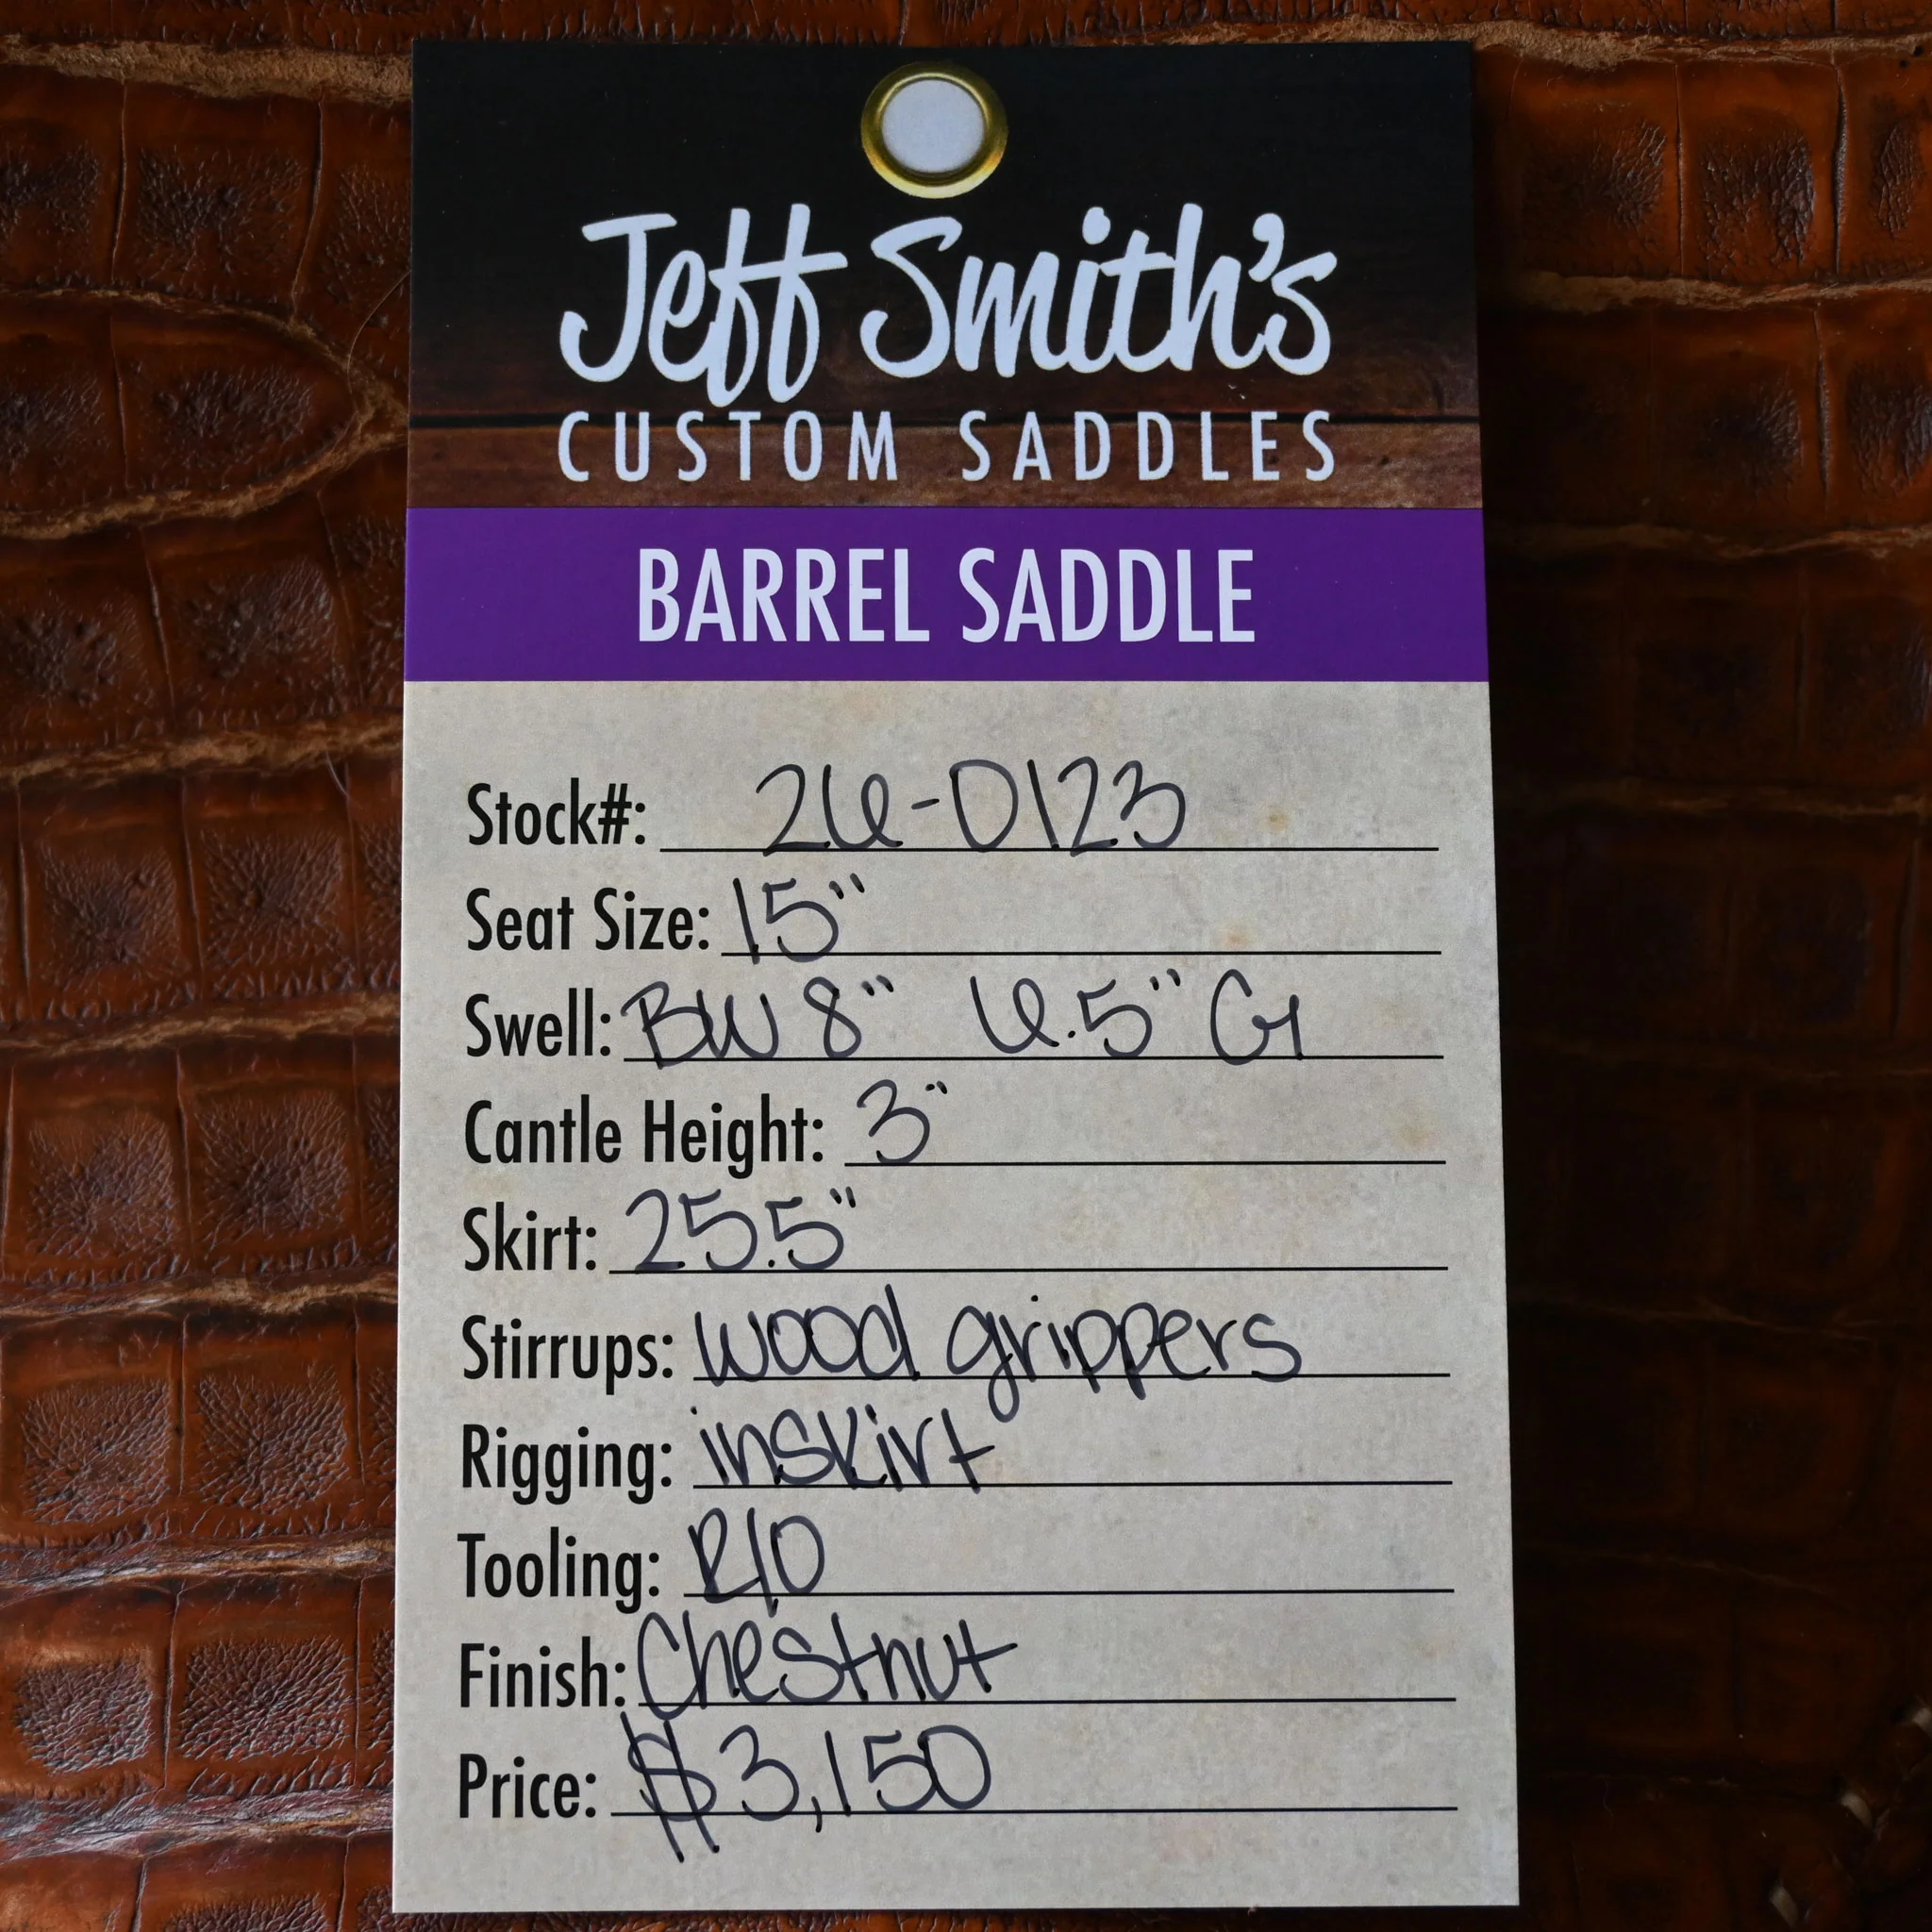 Jeff Smith's
CUSTOM SADDLES
BARREL SADDLE
Stock#: 26-0123
Seat Size: 15"
Swell: BW 8" 6.5" G
Cantle Height: 3"
Skirt: 25.5"
Stirrups: wood grippers
Rigging: inskirt
Tooling: R/O
Finish: Chestnut
Price: $3,150